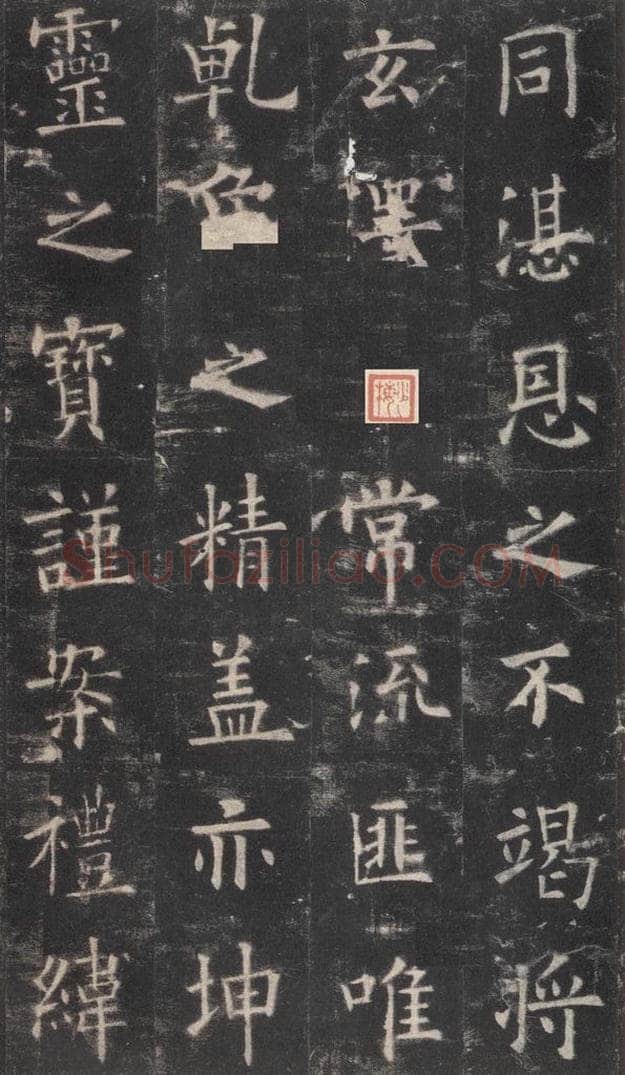 同湛恩之不竭將
玄常流匪唯
乹之精盖亦坤
靈之寶謹案禮緯
Shufaziliao.COM